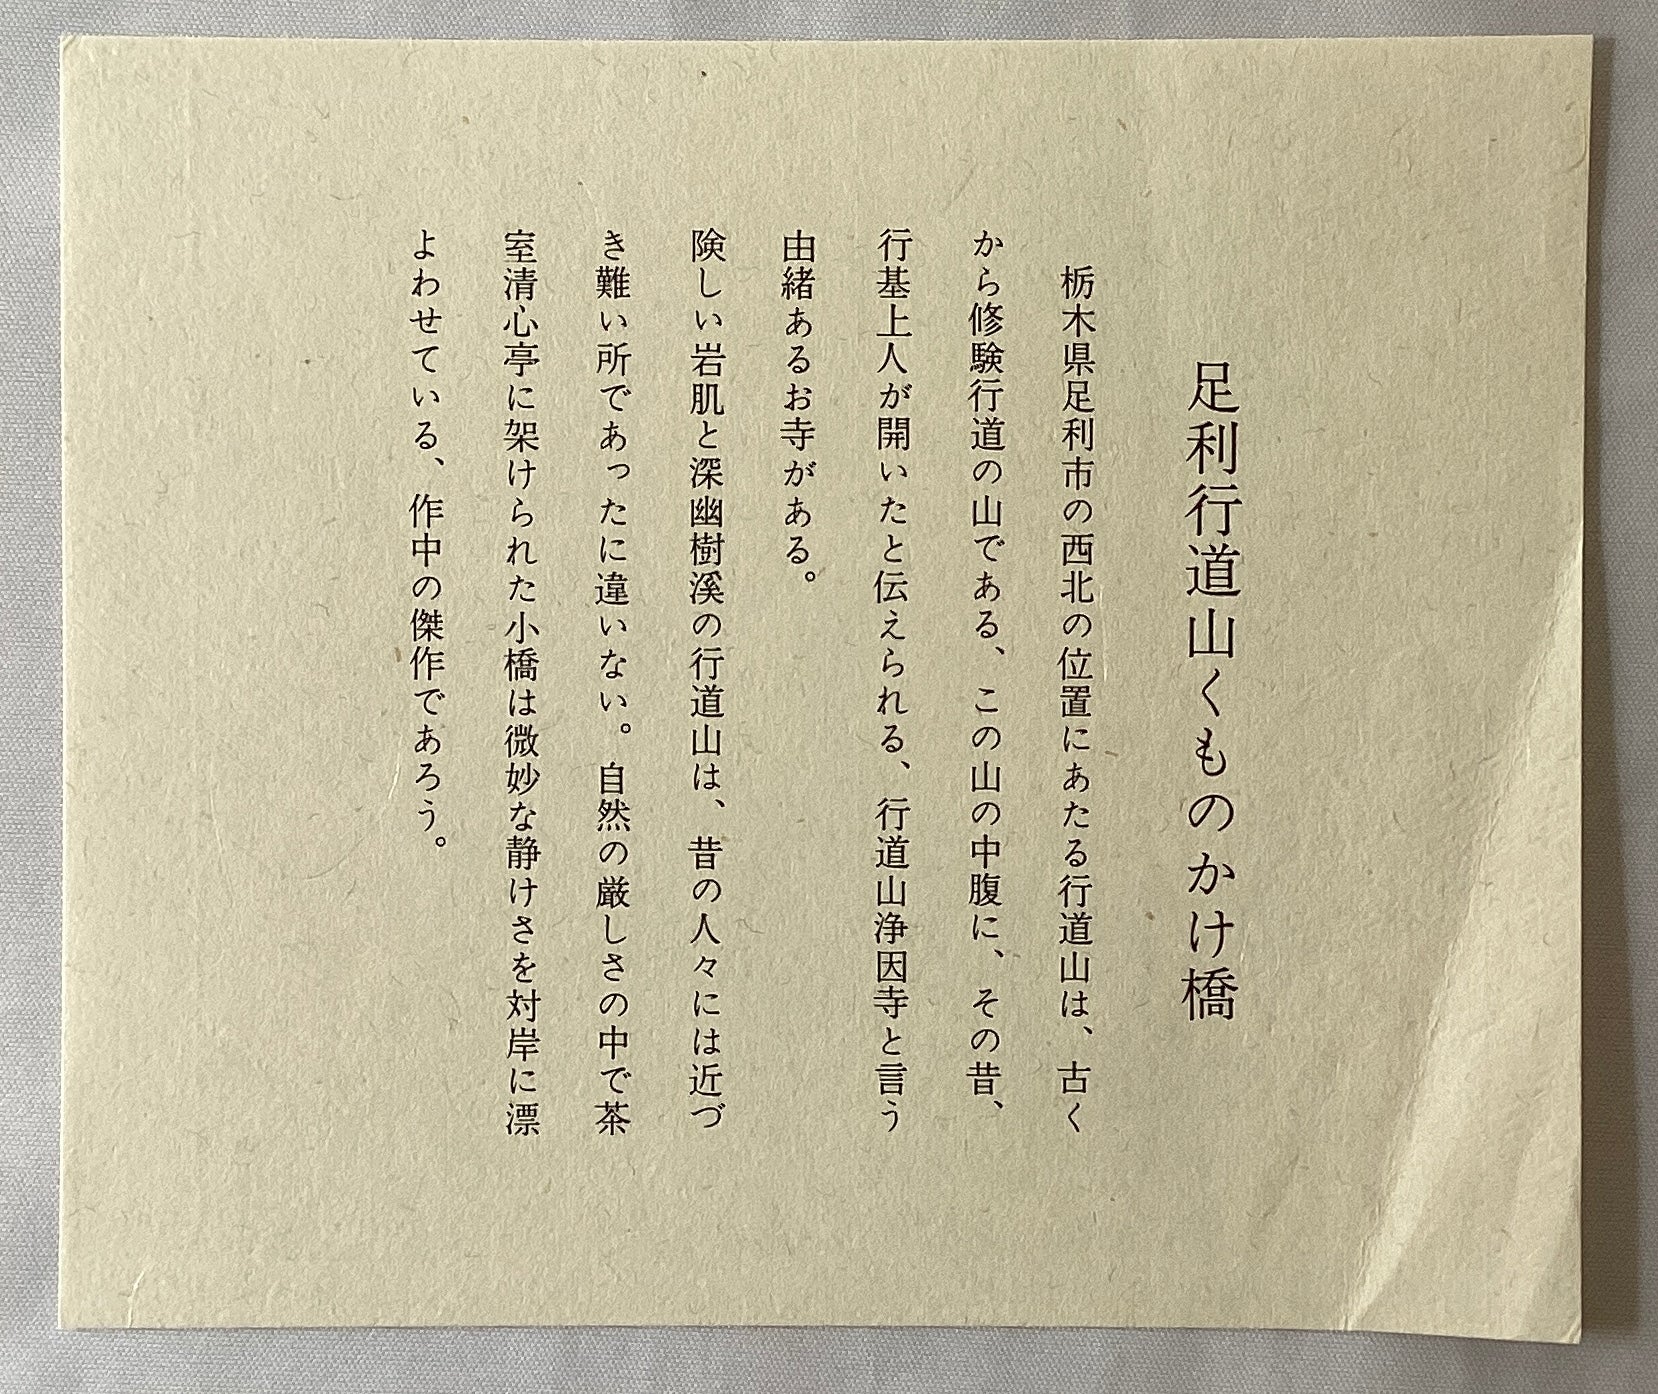 足利行道山くものかけ橋
栃木県足利市の西北の位置にあたる行道山は、古く
から修験行道の山である、この山の中腹に、その昔、
行基上人が開いたと伝えられる、行道山浄因寺と言う
由緒あるお寺がある。
険しい岩肌と深幽樹溪の行道山は、昔の人々には近づ
き難い所であったに違いない。自然の厳しさの中で茶
室清心亭に架けられた小橋は微妙な静けさを対岸に漂
よわせている、作中の傑作であろう。